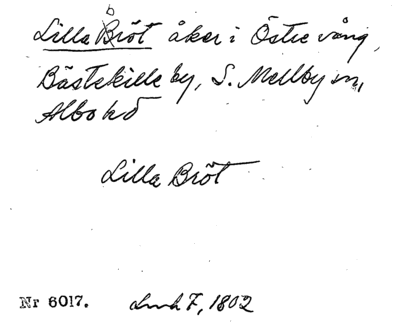 Lilla Bröt åker i Östre vång,
Bästekille by, S. Mellby sn,
Albo hd
Lilla Bröt
Nr 6017. Lmh F, 1802